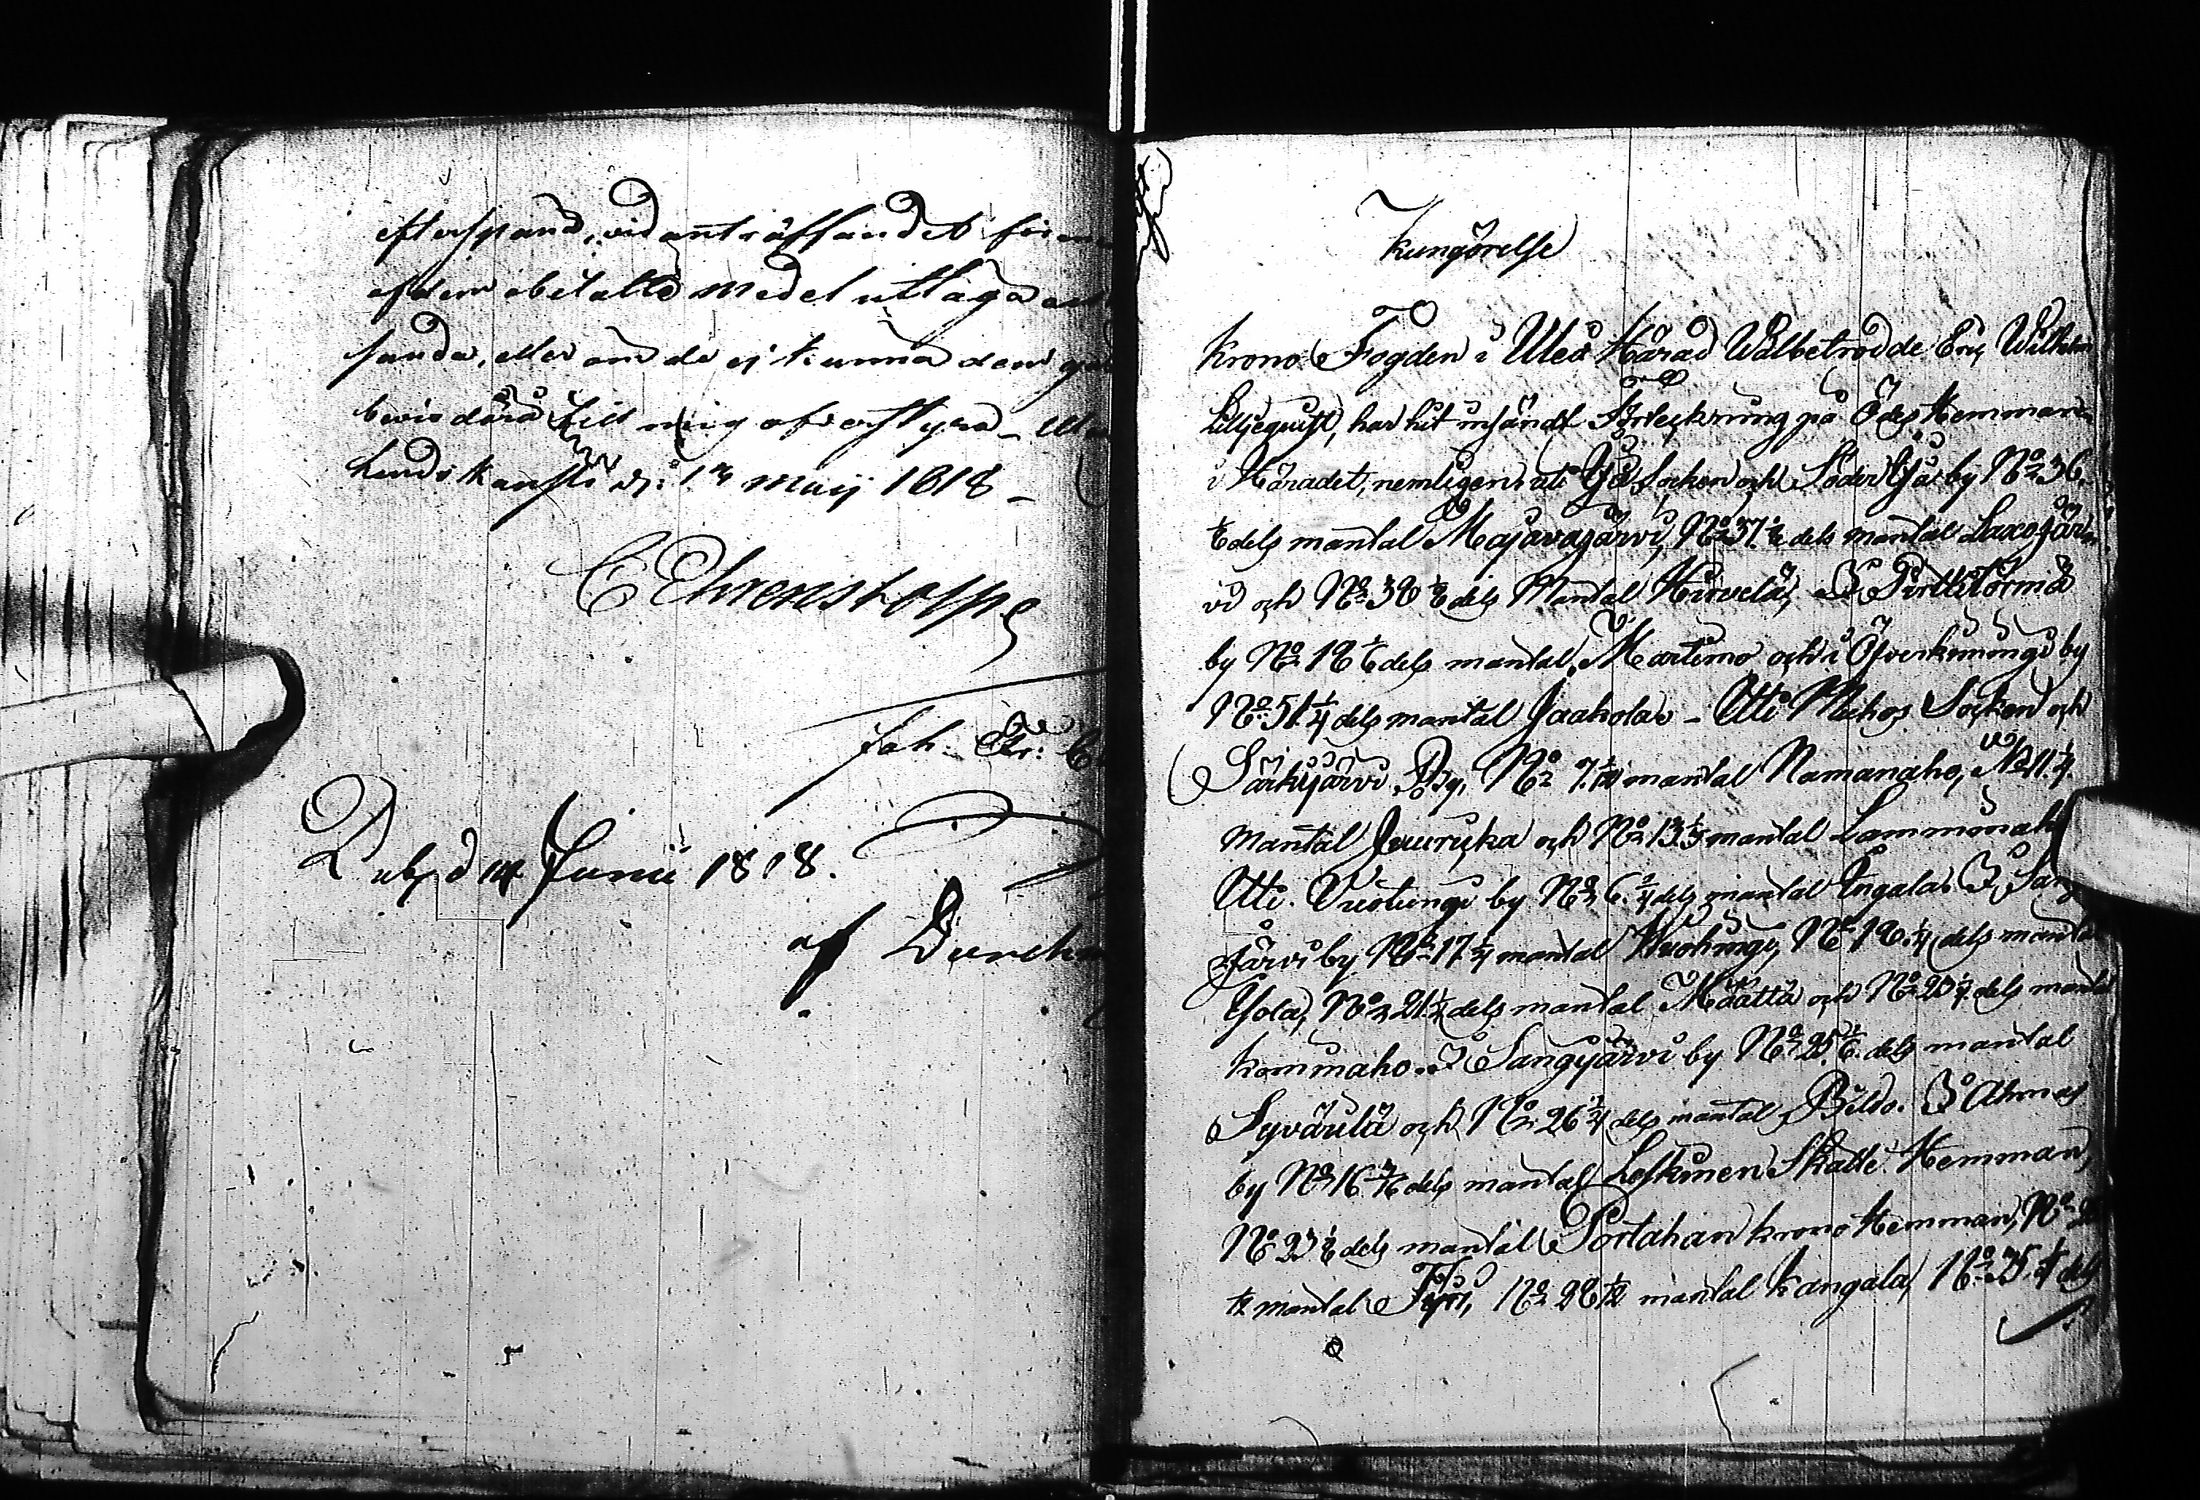 efterspand, vid anträffandet för
af dem obetalte medel uttaga
sanda, eller om de ej kunna dem
bevis därå till mig aflefverera
Landskansli d: 1 Maij 1818 –
C Ehrenstolpe
Joh. Fr.
Publ d 14 Junii 1818.
af Durchm
Kungörelse
Krono Fogden i Uleå Härad Wälbetrodde Eric Wilhelm
Liljequist, har hit insändt Förteckning på Ödes Hemman
i Häradet, nemligen: uti Ijo Socken och Södra Ijo by No 36.
1/6 dels mantal Majavajärvi, No 37. 1/6 dels mantal Laxojär
vi och No 38 1/6 dels Mantal Hirvelä, I Pirttitörmä
by No 18 1/6 dels mantal Martimo och i Öfverkiimingi by
No 51 1/4 dels mantal Jaakola – Uti Muhos Socken och
Särkijärvi By, No 7. mantal Namanaho, No 11. 1/4
mantal Juurukka och No 13. mantal Lamminaho
Uti Vuotungi by No 6. 1/4 dels mantal Ingala. I San
järvi by No 17 1/4 mantal Huohingi, No 18. 1/4 dels mantal
Yola, No 21 1/4 dels mantal Määttä och No 20 1/4 dels mantal
Kominaho. I Sangijärvi by No 25 1/6 dels mantal
Syväulä och No 26 1/4 dels mantal Pildo. I Ahmas
by No 16 dels mantal Leskinen Skatte Hemman,
No 23 1/6 dels mantal Portahan krono Hemman, No
1/12 mantal Fyri, No 28 1/12 mantal Kangala, No 35. 1/4 dels